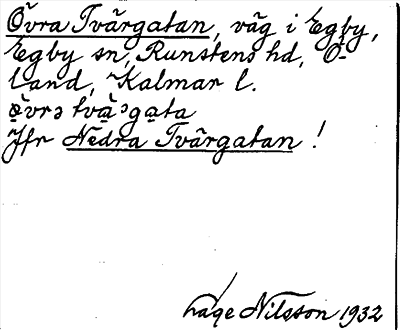 Övra Tvärgatan, väg i Egby,
Egby sn, Runstens hd, Ö-
land, Kalmar l.
övrə tväᵊgata
Jfr Nedra Tvärgatan!
Lage Nilsson 1932